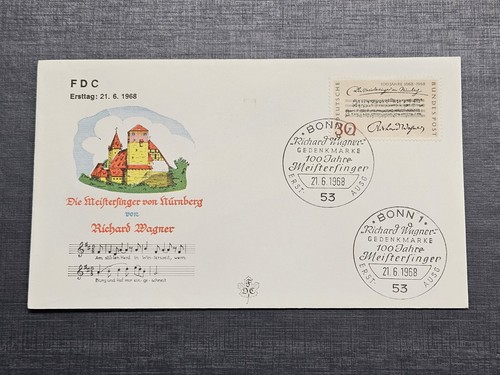 FDC
Ersttag: 21. 6. 1968
Die Meistersinger von Nürnberg
von
Richard Wagner
Am stillen Herd in Winterszeit, wenn
Burg und Hof mir eingeschneit
F
DC
DEUTSCHE
BUNDESPOST
30
Richard Wagner
BONN 1
Richard Wagner-
GEDENKMARKE
100 Jahre
Meistersinger
21.6.1968
ERST-
AUSG
53
BONN 1
Richard Wagner-
GEDENKMARKE
100 Jahre
Meistersinger
21.6.1968
ERST-
AUSG
53